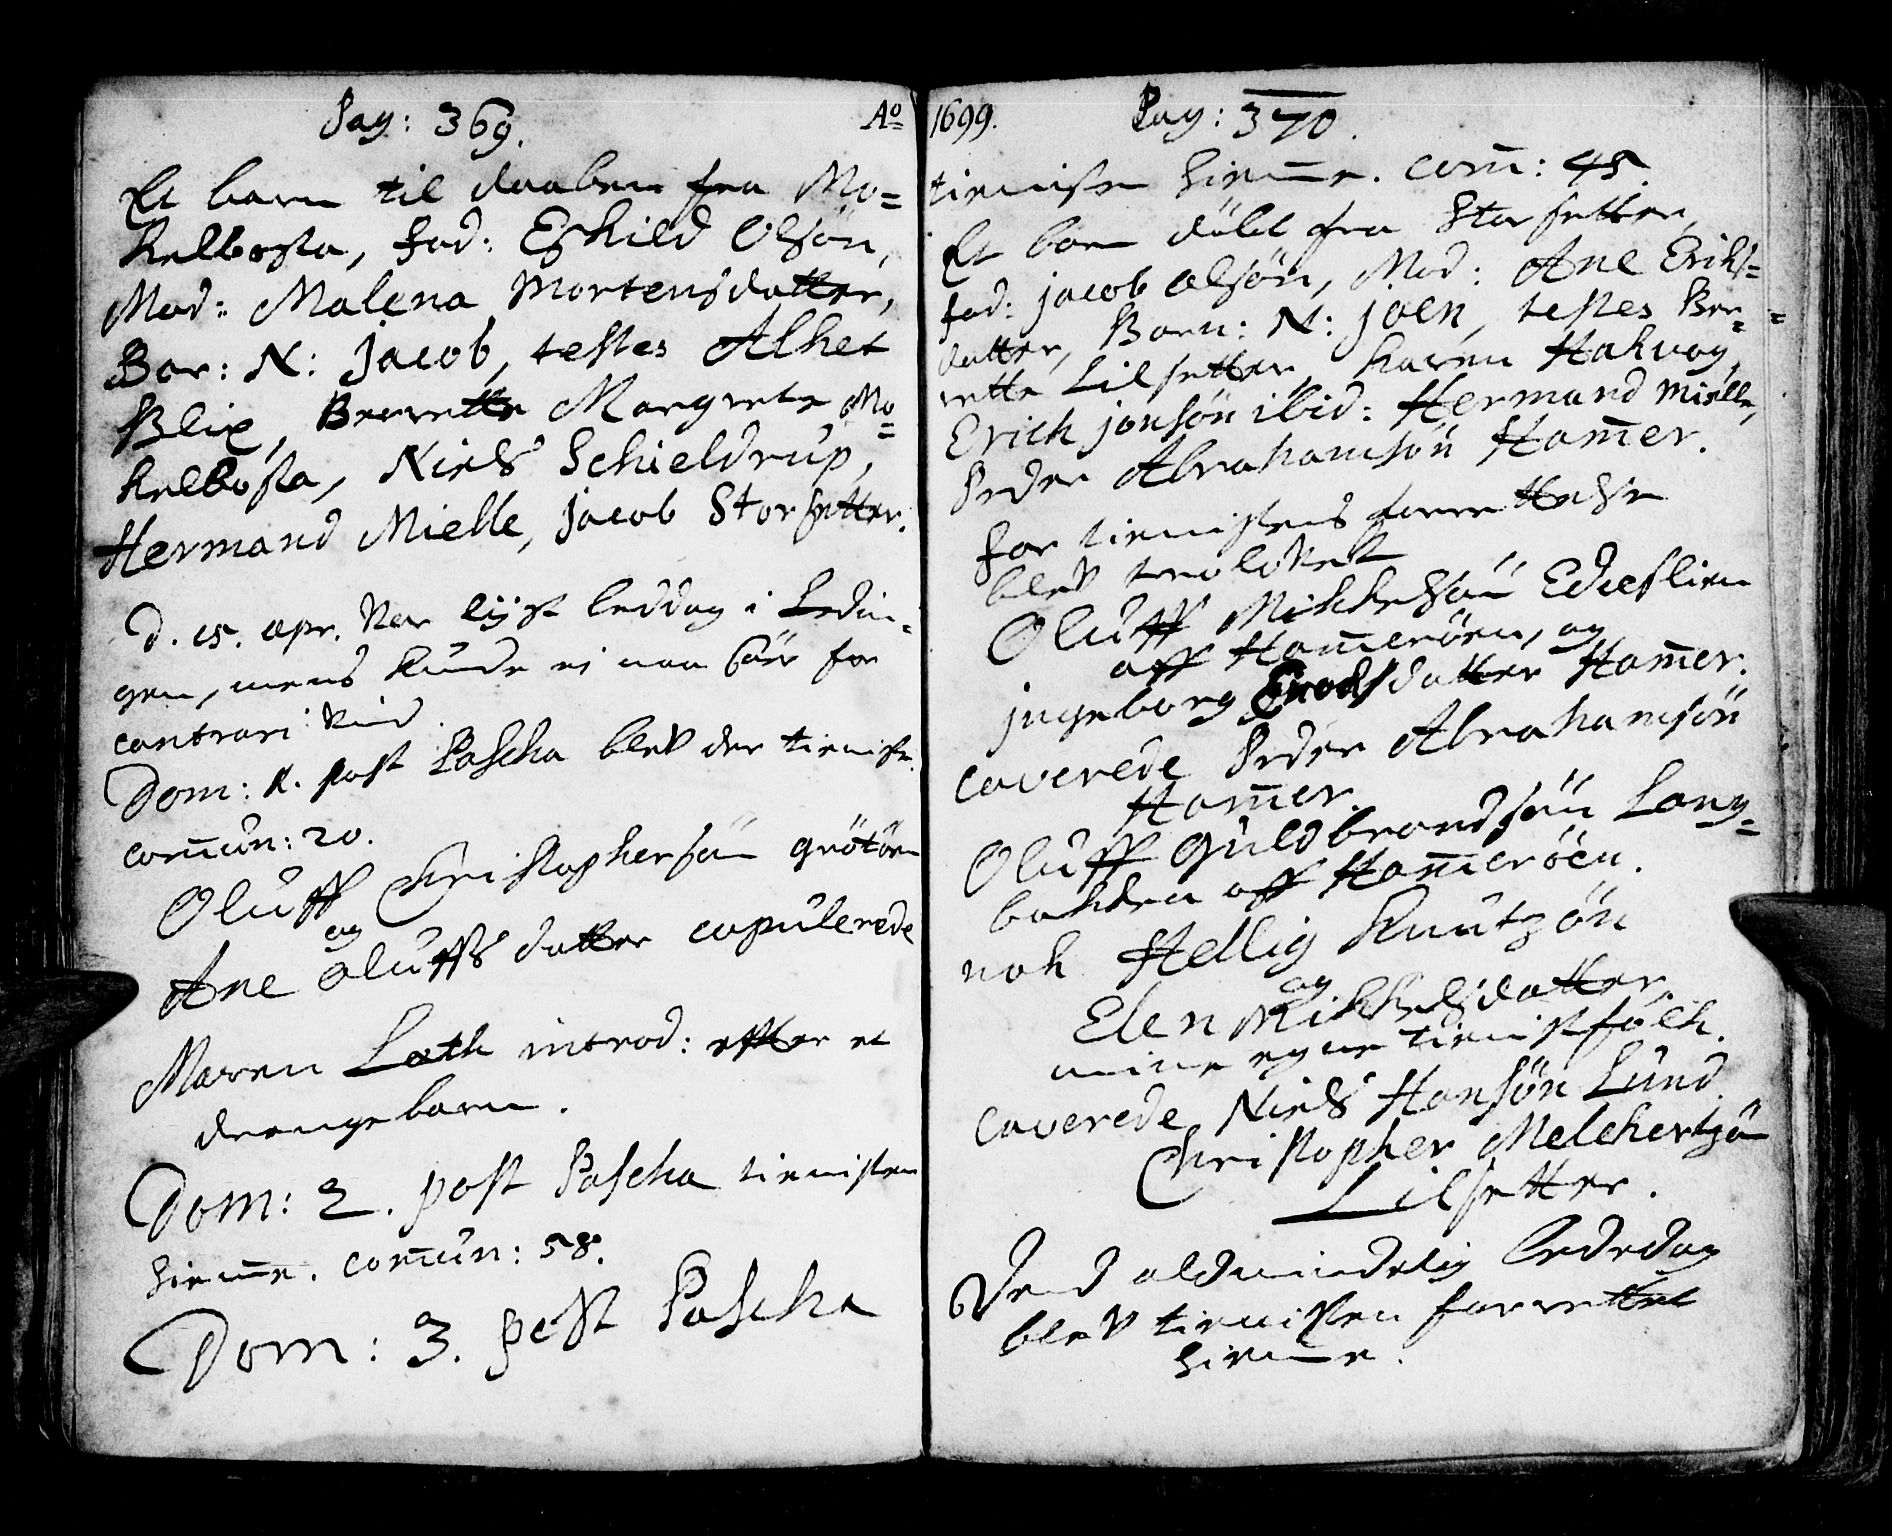 Pag: 369. Ao
Et barn til daaben fra Mo=
kelbosta, fad: Eskild Olsön,
Mod: Malena Mortensdatter,
Bar: N: jacob, testes Alhet
Blix, Berrette Margrete Mo=
kelbosta, Niels Schieldrup,
Hermand Mielle, jacob Storsetter.
D. 15. apr. var lyst beddag i Lødin-
gen, mens kunde ej naa for
contrari vind.
Dom: 1. post Pascha blev der tieniste.
com̅un: 20.
Oluff Christophersön grötöen
og
Ane Oluffs datter copulerede
Maren Lath introd: efter et
drengebarn.
Dom: 2. post Pascha tienisten
hiem̅e. com̅un: 58.
Dom: 3. post Pascha
1699. Pag: 370.
tienisten hiem̅e. com̅: 45.
Et barn döbt fra Storsetter,
fad: jacob olsön, Mod: Ane Eriks=
datter, Barn: N: joen, testes Ber=
rette Lilsetter, Karen Hakvag,
Erich jonsön ibid: Hermand Mielle,
Peder Abrahamsön Ham̅er.
for tienistens forrettelse
blev trolovet
Oluff Mikkelsön
aff Ham̅eröen, og
jngeborg datter Ham̅er.
caverede Peder Abrahamsön
Ham̅er.
Oluff Guldbrandsön Lang=
bakken aff Ham̅eröen.
nok Hellig Knutzön
og
Elen Mikkelsdatter,
mine egne tienistfolck.
caverede Niels Hansön Lund
Christopher Melchertzön
Lilsetter.
Dend aldmindelig Bededag
blev tienisten forrettet
hiem̅e.